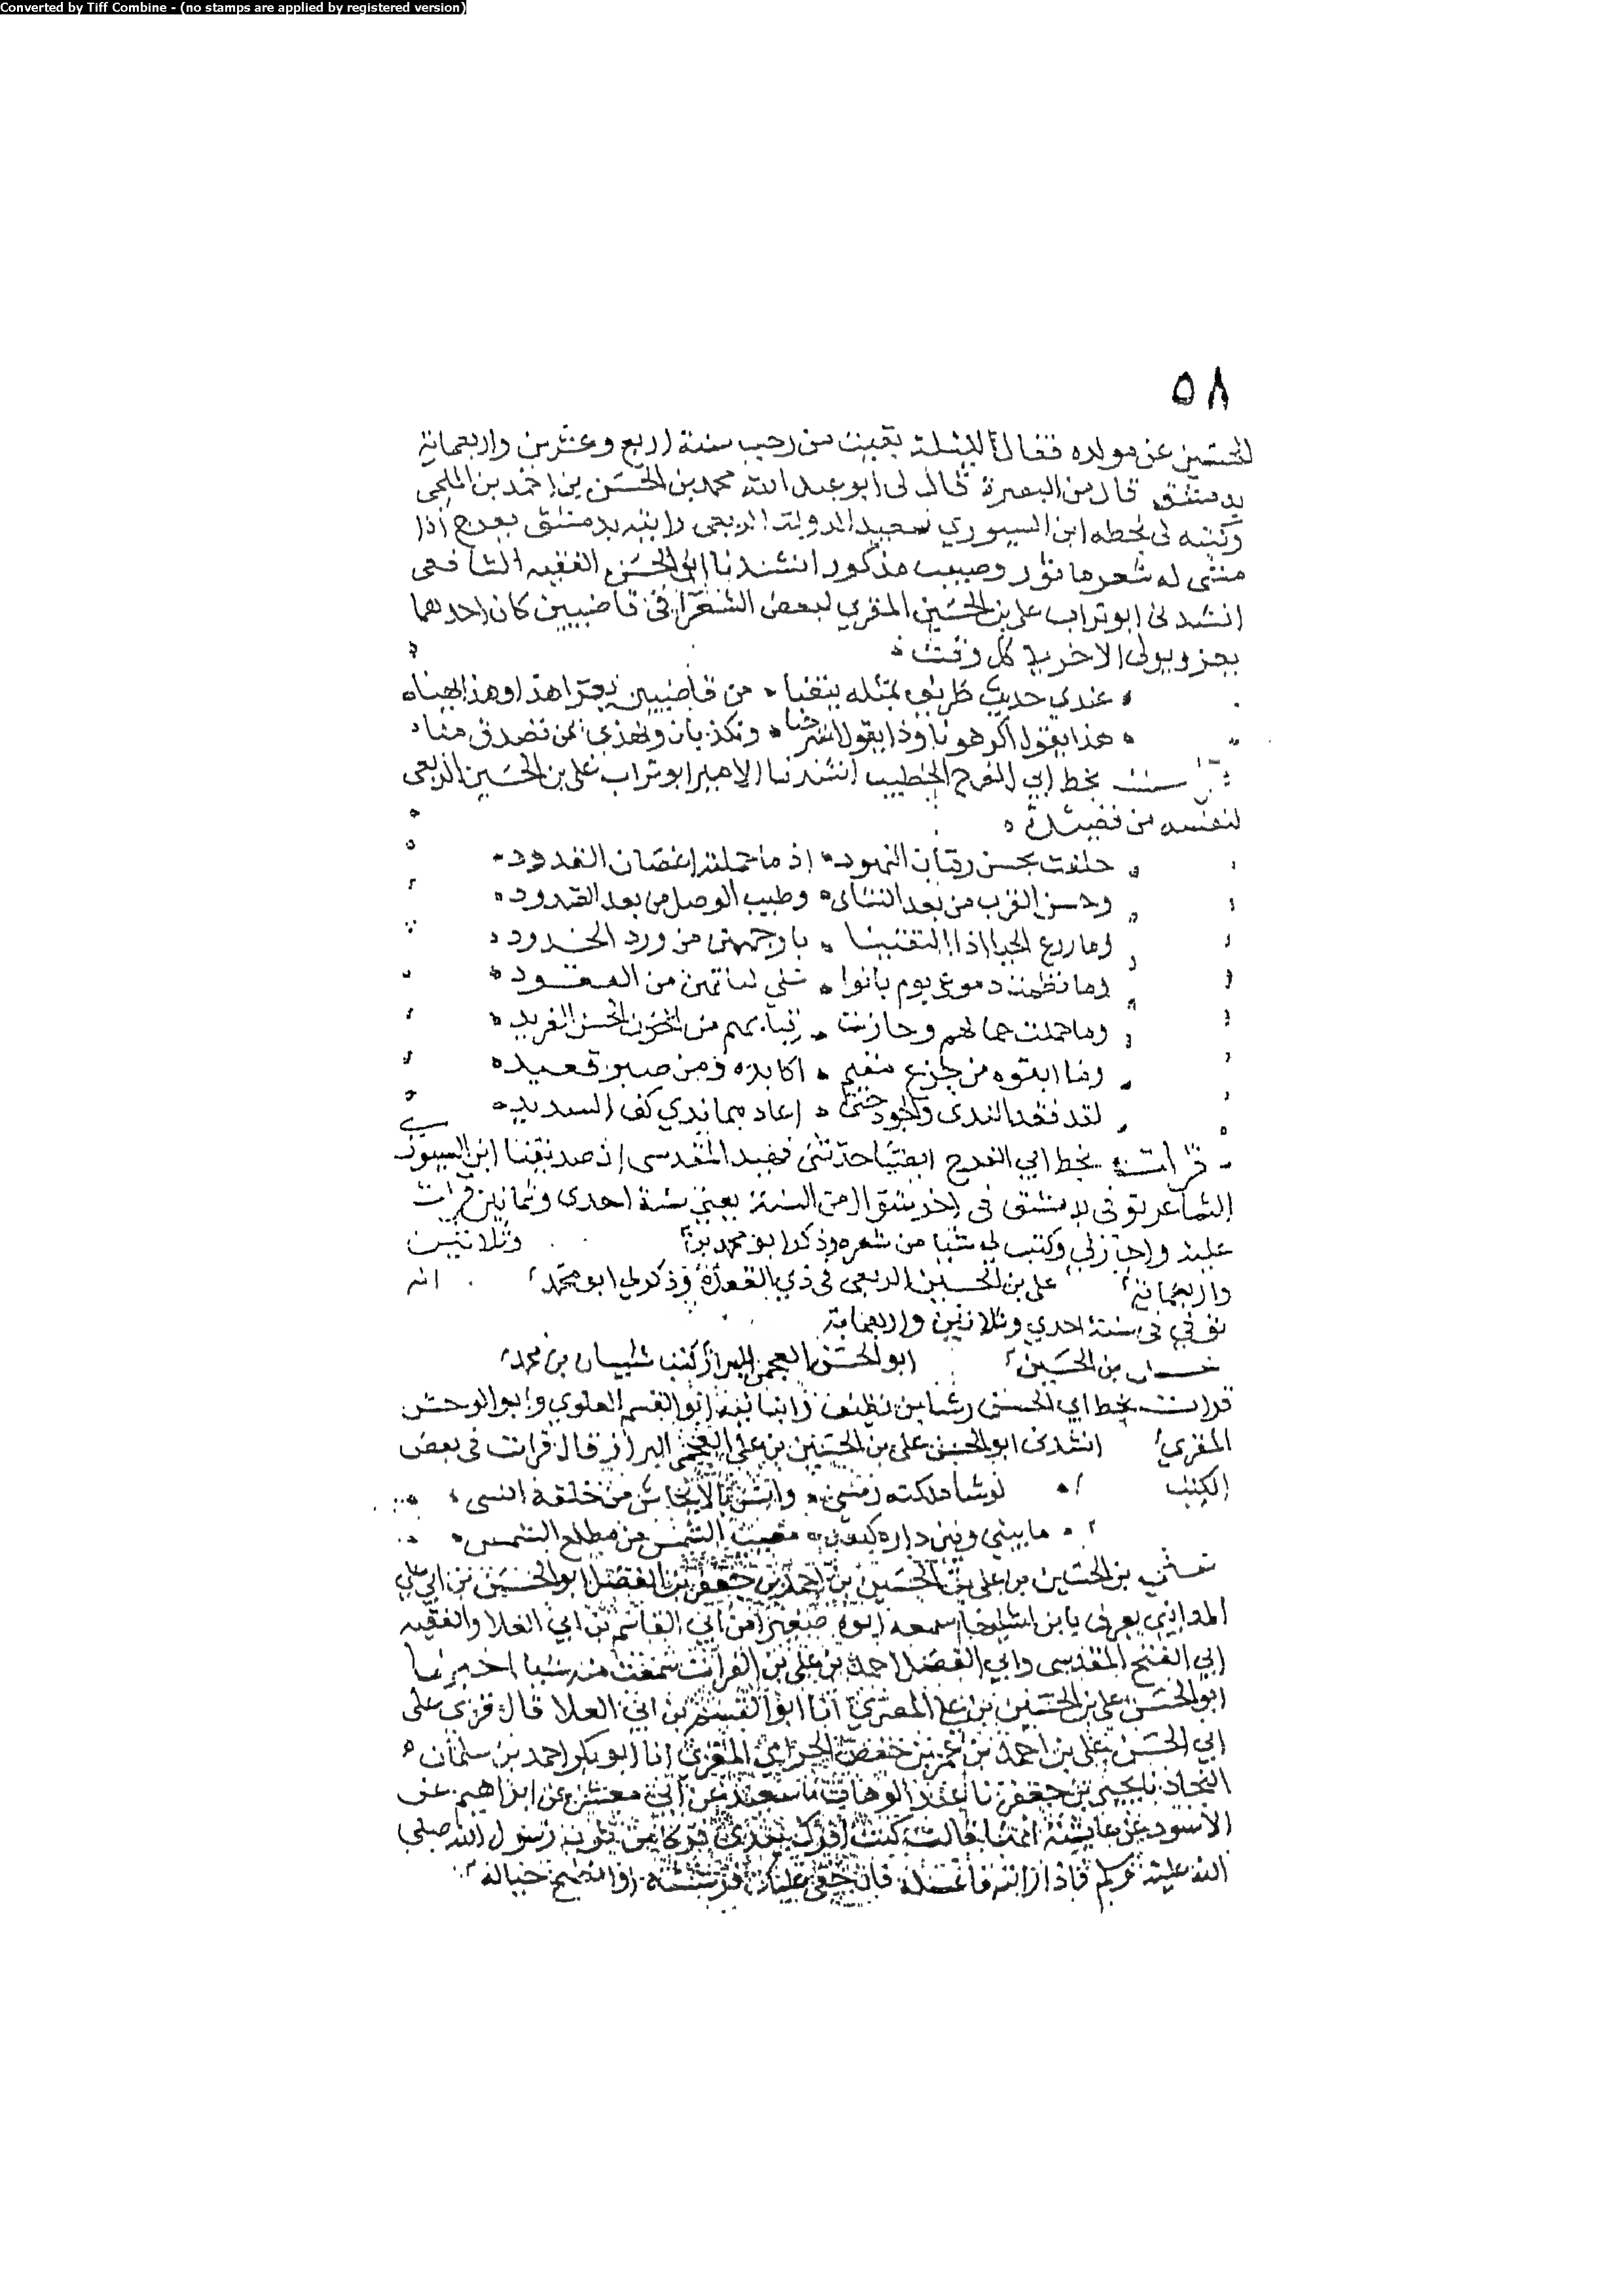 Converted by Tiff Combine - (no stamps are applied by registered version)
٥٨
الحسين عن مولده فقال لليلة بقيت من رجب سنة اربع وعشرين واربعماية
بدمشق قال من البصرة قال لى ابو عبد الله محمد بن الحسن بن احمد بن الملحى
وكتبه لى بخطه ابن السيوري سعيد الدولة الربعى رايته بدمشق
له شعر ماثور وصيت مذكور انشدنا ابو الحسن الفقيه الشافعى
انشدنى ابو تراب على بن الحسين المقرى لبعض الشعرا فى قاضيين كان احدهما
يعزل ويولى الاخر فى كل وقت
عندي حديث ظريف بمثله يتغنا من قاضيين يعزا هذا وهذا يهنا
هذا يقول اكرهونا وذا يقول استرحنا ويكذبان ونهذى فمن يصدق منا
بخط ابي الفرج الخطيب انشدنا الامير ابو تراب على بن الحسين الربعى
لنفسه من قصيدة
حلفت بحسن رمان النهود اذ ما حملته اغصان القدود
وحسن القرب من بعد التناى وطيب الوصل من بعد الصدود
وما زرع الحيا اذا التقينا باوجههن من ورد الخدود
وما نظمت دموعى يوم بانوا على لباتهن من العقود
وما حملت جمالهم وحازت قبابهم من الحسن الفريد
وما ابقوه من جزع مقيم اكابده ومن صبر فقيد
لقد فقد الندى والجود حتى اعادهما ندي كف السديد
قرات بخط ابي الفرج ايضا حدثنى المقدسى ان صديقنا ابن السيورى
الشاعر توفى بدمشق فى اخر شوال من السنة يعني سنة احدى وثمانين قرات
عليه واجاز لي وكتب لي شيا من شعره وذكر ابو محمد بن وثلاثين
واربعماية على بن الحسين الربعى فى ذي القعدة وذكر لي ابو محمد انه
توفي فى سنة احدي وثلاثين واربعماية
بن الحسين ابو الحسن العجمى البزاز كتب بن محمد
قرات بخط ابي الحسن رشا بن نظيف وانبانيه ابو القسم العلوي وابو الوحش
المقري انشدنى ابو الحسن على بن الحسين بن على العجمى البزاز قال قرات فى بعض
الكتب
ما بيني وبين داره مغيب الشمس من مطلع الشمس
بن الحسين بن على بن الحسين بن احمد بن جعفر بن الفضل ابو الحسين بن ابي علي
يعرف بابن اسمعه ابوه صغيرا من ابي القاسم بن ابي العلا والفقيه
ابي الفتح المقدسى وابي الفضل احمد بن على بن الفرات سمعت منه شيا اخبرنا
ابو الحسن على بن الحسين بن على المصري انا ابو القسم بن ابي العلا قال قرى على
ابي الحسن على بن احمد بن عمر بن حفص المقرى انا ابو بكر احمد بن سلمان
النجاد نا يحيى بن جعفر نا عبد الوهاب نا سعيد عن ابي معشر عن ابراهيم عن
الاسود عن عايشة انها قالت كنت افرك من ثوب رسول الله صلى
الله عليه وسلم فاذا رايته فاغسله فان خفى عليك فرشه